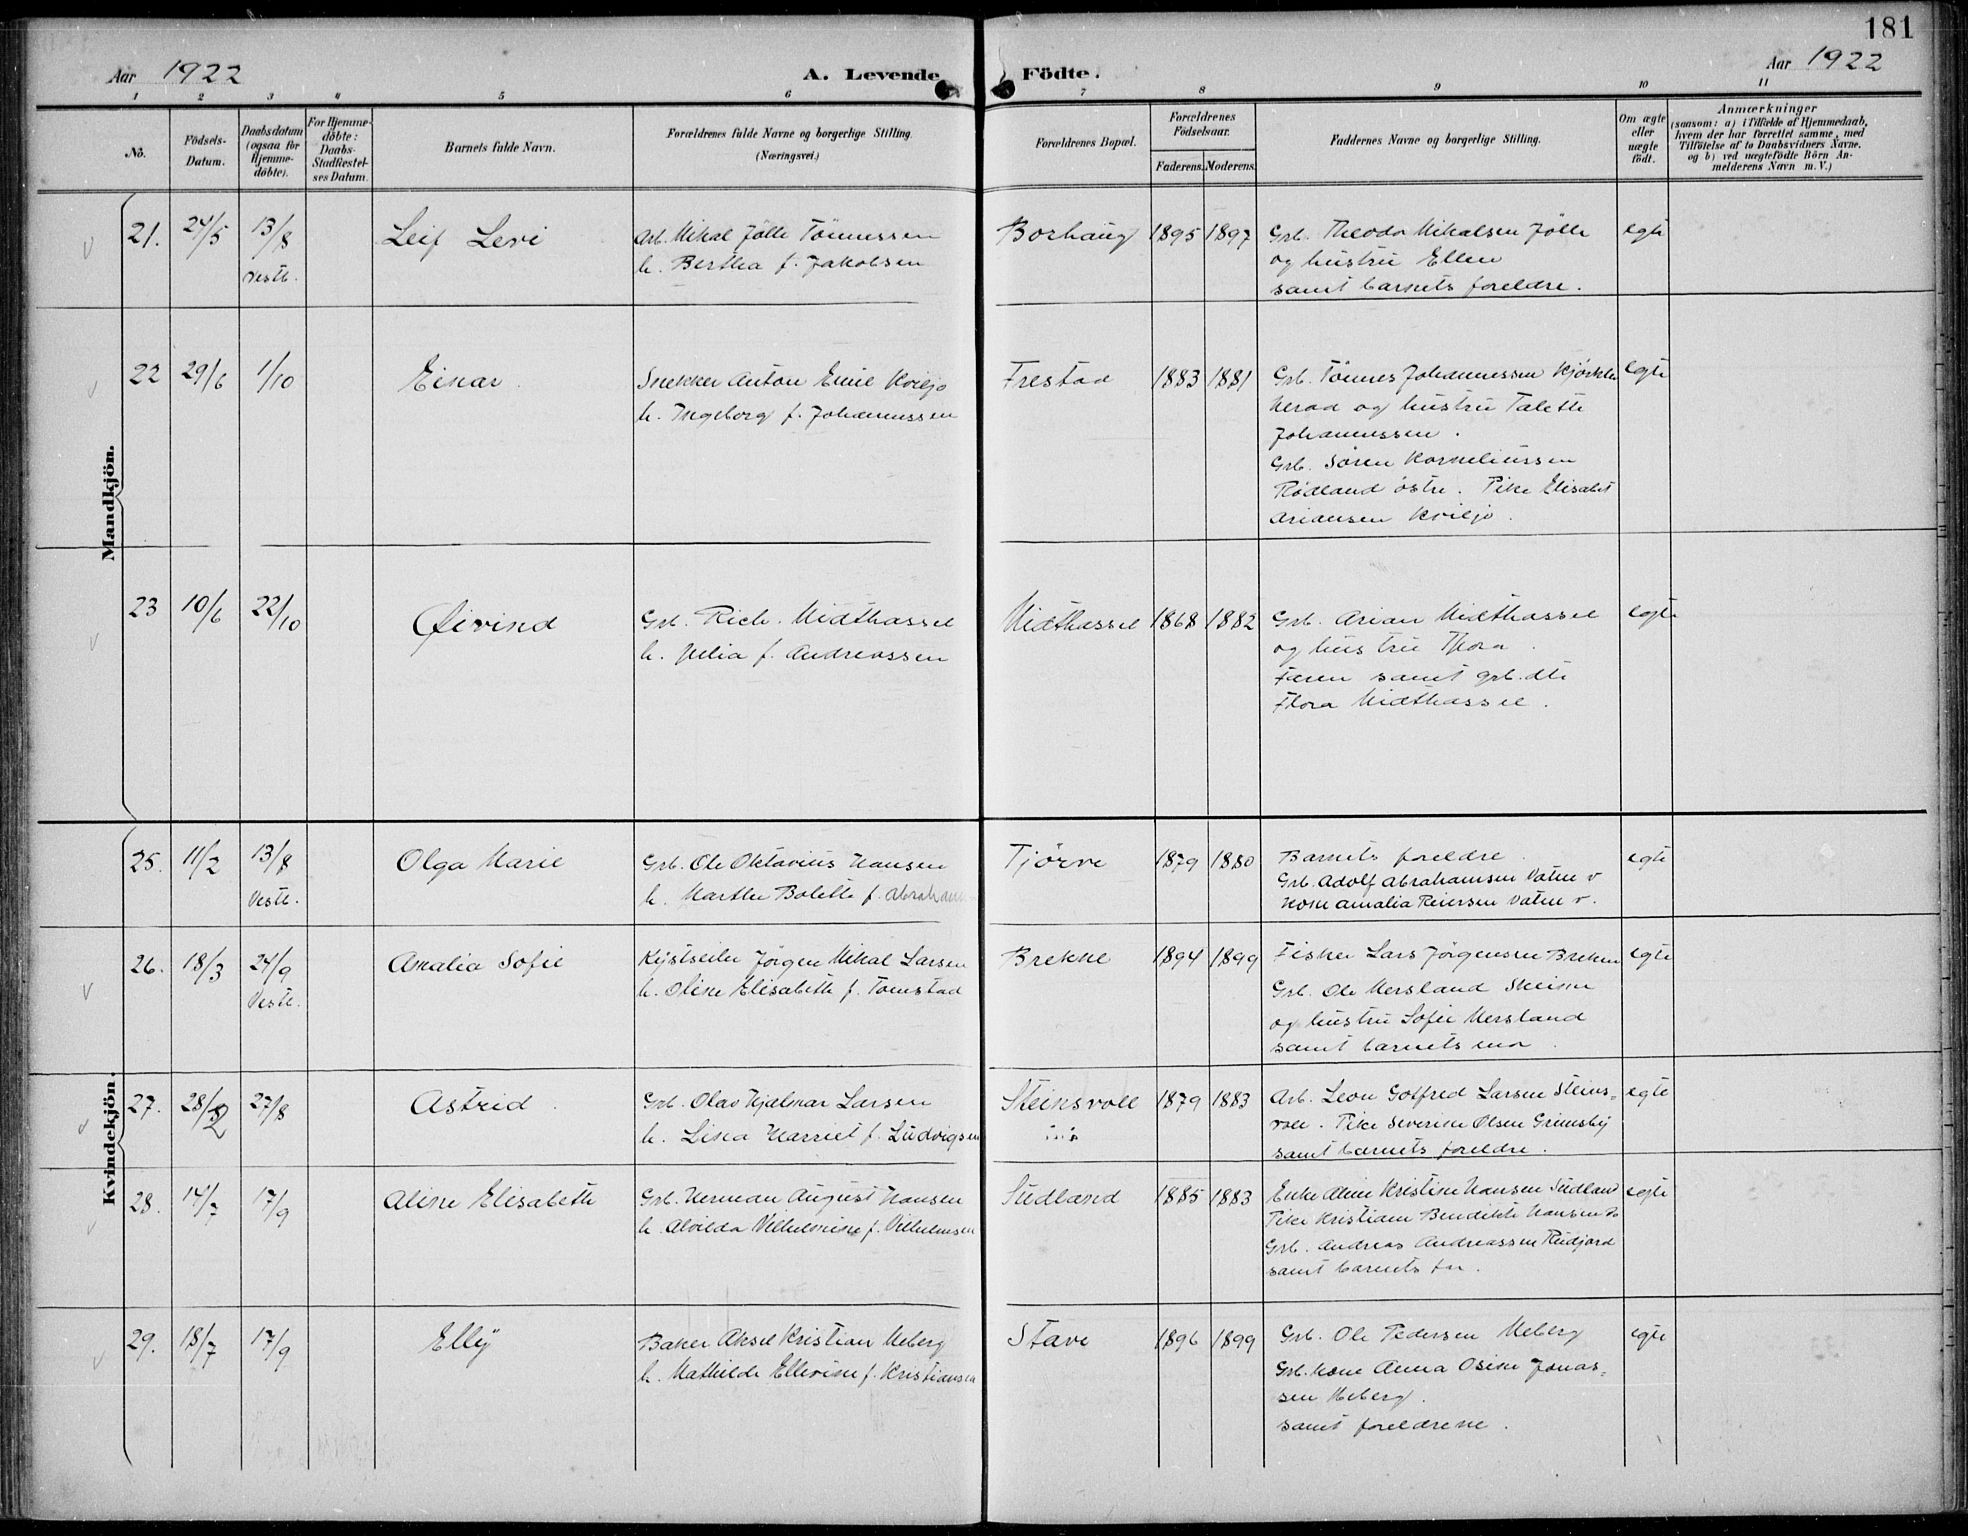 181
Aar 1922
A. Levende
Födte.
Aar 1922
1 2 3 4 5 6 7 8 9 10 11
No.
Födsels-
Datum.
Daabsdatum
(ogsaa for
Hjemme-
döbte).
For Hjemme-
döbte:
Daabs-
Stadfæstel-
ses Datum.
Barnets fulde Navn.
Forældrenes fulde Navne og borgerlige Stilling.
(Næringsvei.)
Forældrenes Bopæl.
Forældrenes
Födselsaar.
Faderens. Moderens.
Faddernes Navne og borgerlige Stilling.
Om ægte
eller
uægte
födt.
Anmærkninger
(saasom: a) i Tilfælde af Hjemmedaab,
hvem der har forrettet samme, med
Tilföielse af to Daabsvidners Navne,
og b) ved uægtefödte Börn An-
melderens Navn m. V.)
Mandkjön.
21. 24/5 13/8 Leif Levi Arb. Mikal Jølle Tønnessen Borhaug 1895 1897 Grb. Theodor Mikalsen Jølle egte
Vestb. h. Bertha f. Jakobsen og hustru Ellen
samt barnets foreldre.
22 29/6 1/10 Einar Snekker Anton Emil Kviljo Frestad 1883 1881 Grb. Tønnes Johannessen egte
h. Ingeborg f. Johannessen og hustru Talette
Johannessen.
Grb. Søren Korneliussen
Rødland østre. Pike Elisabet
Ariansen Kviljo.
23 10/6 22/10 Øivind Grb. Rich. Midthassel Midthassel 1868 1882 Grb. Arian Midthassel egte
h. Julia f. Andreassen og hustru Thora.
Faren samt grb.dtr.
Flora Midthassel.
Kvindekjön.
25. 11/2 13/8 Olga Marie Grb. Ole Oktavius Hansen Tjørve 1879 1880 Barnets foreldre. egte
Vestb. h. Marthe Bolette f. Abraham Grb. Adolf Abrahamsen Vatne v
Kone Amalia Reiersen Vatne v.
26. 18/3 24/9 Amalia Sofie Kystseiler Jørgen Mikal Larsen Brekne 1894 1899 Fisker Lars Jørgensen Brekne egte
Vestb. h. Oline Elisabeth f. Tomstad Grb. Ole Mersland
og hustru Sofie Mersland
samt barnets mor.
27. 28/2 27/8 Astrid. Grb. Olav Hjalmar Larsen Steinsvoll 1879 1883 Arb. Leon Gotfred Larsen Steins- egte
h. Lina Harriet f. Ludvigsen voll. Pike Severine Olsen Grimsby
samt barnets foreldre.
28. 14/7 17/9 Aline Elisabeth Grb. Herman August Hansen Sudland 1885 1883 Enke Aline Kristine Hansen Sudland egte
h. Alvilda Vilhelmine f. Vilhelmsen Pike Kristiane Bendikte Hansen do
Grb. Andreas Andreassen Reidjord
samt barnets far.
29. 18/7 17/9 Elly Baker Aksel Kristian Meberg Stave 1896 1899 Grb. Ole Pedersen Meberg egte
h. Mathilde Ellevine f. Kristiansen Grb. kone Anna Osine Jonas-
sen Meberg.
samt foreldrene.